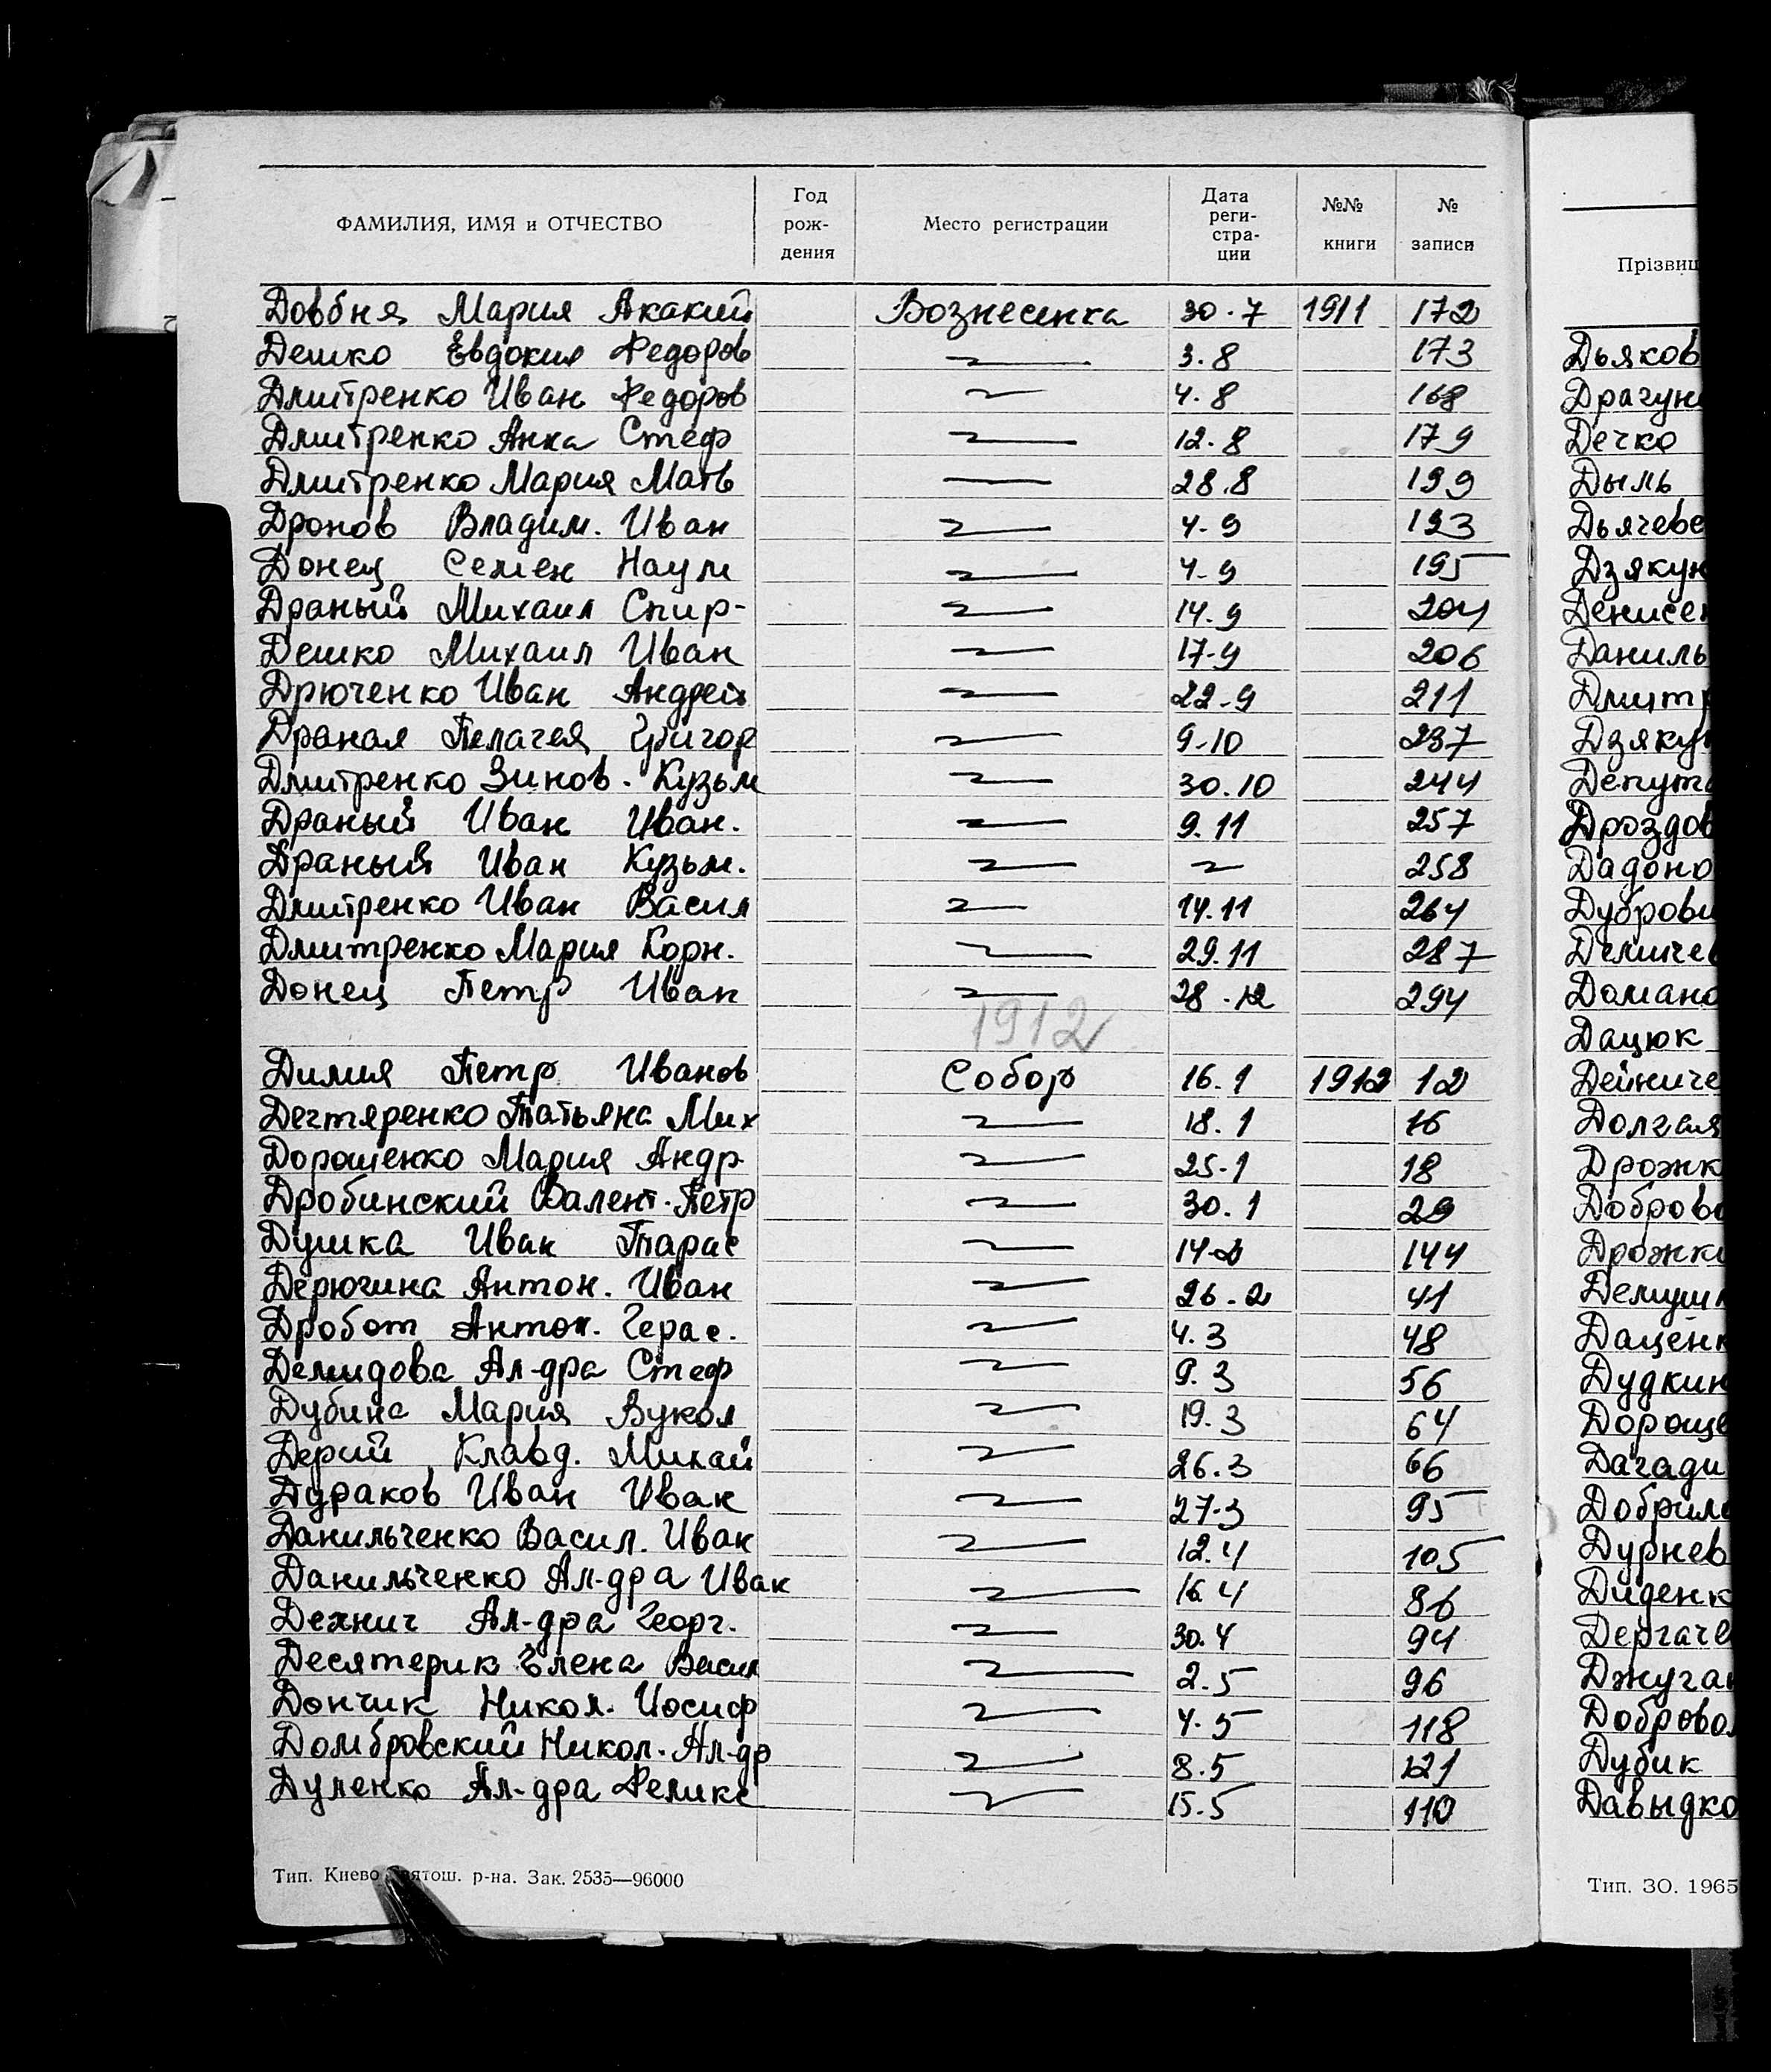 ФАМИЛИЯ, ИМЯ и ОТЧЕСТВО Год рож- дения Место регистрации Дата реги- стра- ции №№ книги № записи
Довбня Мария Акакий Вознесенка 30.7 1911 172
Дешко Евдокия Федоров 3.8 173
Дмитренко Иван Федоров 4.8 168
Дмитренко Анна Стеф 12.8 179
Дмитренко Мария Матв 28.8 199
Дронов Владим. Иван 4-9 193
Донец Семен Наум 4-9 195
Драный Михаил Спир- 14.9 204
Дешко Михаил Иван 17-9 206
Дрюченко Иван Андрей 22-9 211
Драная Пелагея Григор 9-10 237
Дмитренко Зинов. Кузьм 30.10 244
Драный Иван Иван. 9.11 257
Драный Иван Кузьм. 258
Дмитренко Иван Васил 14.11 264
Дмитренко Мария Корн. 29.11 287
Донец Петр Иван 28.12 294
1912
Димия Петр Иванов Собор 16.1 1912 12
Дегтяренко Татьяна Мих 18.1 16
Дорошенко Мария Андр 25-1 18
Дробинский Валент. Петр 30.1 29
Душка Иван Тарас 14-2 144
Дерюгина Антон. Иван 26-2 41
Дробот Антон. Герас. 4.3 48
Демидова Ал-дра Стеф 9.3 56
Дубина Мария Вукол 19.3 64
Дерий Клавд. Михай 26.3 66
Дураков Иван Иван 27-3 95
Данильченко Васил. Иван 12.4 105
Данильченко Ал-дра Иван 16.4 86
Дехнич Ал-дра Георг. 30.4 94
Десятерик Елена Васил 2.5 96
Дончик Никол. Иосиф 4.5 118
Домбровский Никол. Ал-др 8.5 121
Дуленко Ал-дра Феликс 15.5 110
Тип. Киево р-на. Зак. 2535—96000
Прізвищ
Дьяков
Драгун
Дечко
Дыль
Дьячеве
Дзякун
Денисен
Даниль
Дмитр
Дзяку
Депута
Дроздов
Дадоно
Дуброви
Демичев
Домано
Дацюк
Дейниче
Долгая
Дрожк
Доброво
Дрожки
Демуш
Даценк
Дудкин
Дороше
Дагади
Добрило
Дурнев
Диденк
Дергаче
Джуган
Доброво
Дубик
Давыдко
Тип. ЗО. 1965